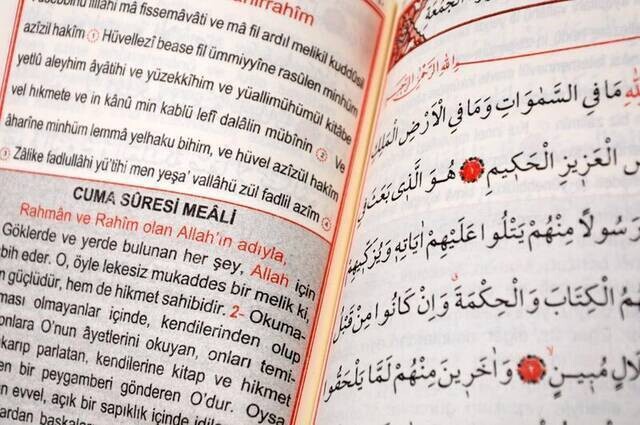 Yüsebbihu lillâhi mâ fissemâvâti ve mâ fil ardıl melikil kuddûsil
azîzil hakîm 1 Hüvellezî bease fil ümmiyyîne rasûlen minhüm
yetlû aleyhim âyâtihî ve yüzekkîhim ve yüallimühümül kitâbe
vel hıkmete ve in kânû min kablü lefî dalâlin mübînin 2 Ve
âharîne minhüm lemmâ yelhaku bihim, ve hüvel azîzül hakîm
3 Zâlike fadlullâhi yü'tîhi men yeşa' vallâhü zül fadlil azîm 4
CUMA SÛRESİ MEÂLİ
Rahmân ve Rahîm olan Allah'ın adıyla,
Göklerde ve yerde bulunan her şey, Allah için
bih eder. O, öyle lekesiz mukaddes bir melik ki,
güçlüdür, hem de hikmet sahibidir. 2- Okuma-
ması olmayanlar içinde, kendilerinden olup
onlara O'nun âyetlerini okuyan, onları temi-
karıp parlatan, kendilerine kitap ve hikmet
en bir peygamberi gönderen O'dur. Oysa
n evvel, açık bir sapıklık içinde idile
ardan başkalar
الجمعة
الله الرحمن الرحيم
لله مَا فِي السَّمٰوَاتِ وَمَا فِي الْاَرْضِ الْمَلِكِ
الْعَزِيزِ الْحَكِيمِ ١ هُوَ الَّذِي بَعَثَ فِي
رَسُولًا مِنْهُمْ يَتْلُوا عَلَيْهِمْ اٰيَاتِهِ وَيُزَكِّيهِمْ
هُمُ الْكِتَابَ وَالْحِكْمَةَ وَاِنْ كَانُوا مِنْ قَبْلُ
لَالٍ مُبِينٍ ٢ وَاٰخَرِينَ مِنْهُمْ لَمَّا يَلْحَقُوا